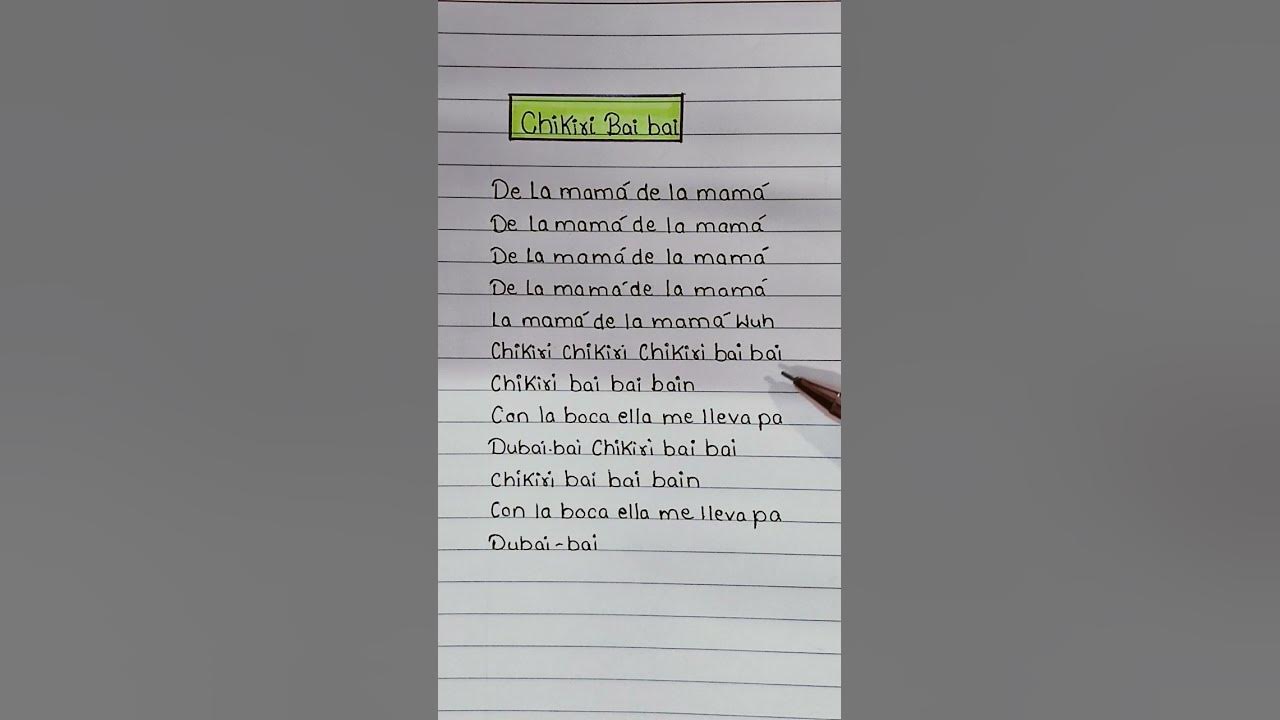 Chikiri Bai bai
De La mamá de la mamá
De La mamá de la mamá
De La mamá de la mamá
De La mamá de la mamá
La mamá de la mamá Wuh
Chikiri Chikiri Chikiri bai bai
Chikiri bai bai bain
Con la boca ella me lleva pa
Dubai-bai Chikiri bai bai
Chikiri bai bai bain
Con la boca ella me lleva pa
Dubai-bai